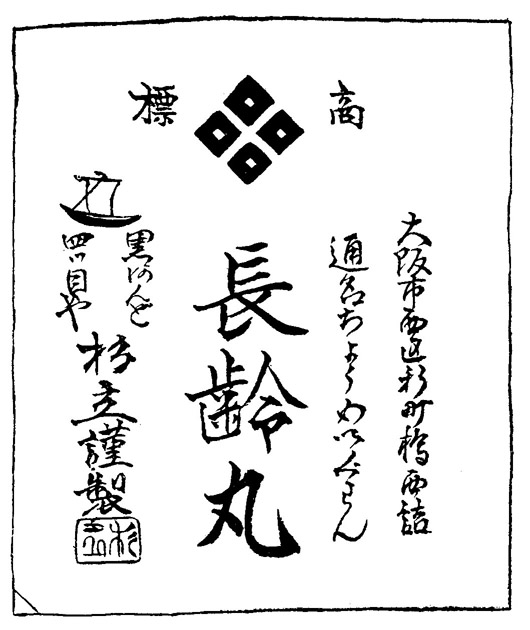 商標
大阪市西区新町橋西詰
通名ちようめいぐわん
長齢丸
黒ぬんど
四ツ目や
杉立謹製
杉立